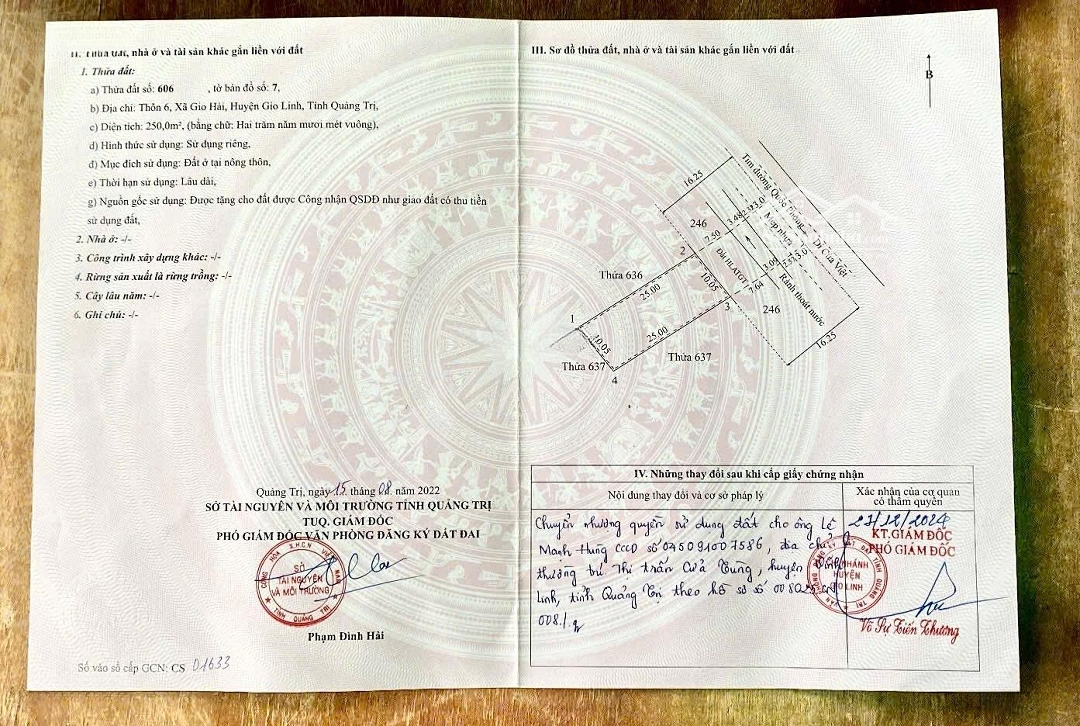 II. Thửa đất, nhà ở và tài sản khác gắn liền với đất
1. Thửa đất:
a) Thửa đất số: 606 , tờ bản đồ số: 7,
b) Địa chỉ: Thôn 6, Xã Gio Hải, Huyện Gio Linh, Tỉnh Quảng Trị,
c) Diện tích: 250,0m², (bằng chữ: Hai trăm năm mươi mét vuông),
d) Hình thức sử dụng: Sử dụng riêng,
đ) Mục đích sử dụng: Đất ở tại nông thôn,
e) Thời hạn sử dụng: Lâu dài,
g) Nguồn gốc sử dụng: Được tặng cho đất được Công nhận QSDĐ như giao đất có thu tiền
sử dụng đất,
2. Nhà ở: -/-
3. Công trình xây dựng khác: -/-
4. Rừng sản xuất là rừng trồng: -/-
5. Cây lâu năm: -/-
6. Ghi chú: -/-
Quảng Trị, ngày 15 tháng 08 năm 2022
SỞ TÀI NGUYÊN VÀ MÔI TRƯỜNG TỈNH QUẢNG TRỊ
TUQ. GIÁM ĐỐC
PHÓ GIÁM ĐỐC VĂN PHÒNG ĐĂNG KÝ ĐẤT ĐAI
SỞ
TÀI NGUYÊN
VÀ MÔI TRƯỜNG
TỈNH QUẢNG TRỊ
Phạm Đình Hải
Số vào sổ cấp GCN: CS 01633
III. Sơ đồ thửa đất, nhà ở và tài sản khác gắn liền với đất
B
16.25
Tim đường Quốc Phòng - Đi Cửa Việt
Mép nhựa
246
7.50
3.48
2
Đất HLATGT
3.09
7.64
Rãnh thoát nước
246
16.25
Thửa 636
25.00
10.05
3
1
10.05
25.00
Thửa 637
Thửa 637
4
IV. Những thay đổi sau khi cấp giấy chứng nhận
Nội dung thay đổi và cơ sở pháp lý
Xác nhận của cơ quan
có thẩm quyền
Chuyển nhượng quyền sử dụng đất cho ông Lê
Mạnh Hùng CCCD số 045091007586, địa chỉ
thường trú: Thị trấn Cửa Tùng, huyện
Linh, tỉnh Quảng Trị theo hồ sơ số
008./.
27/12/2024
KT.GIÁM ĐỐC
PHÓ GIÁM ĐỐC
CHI NHÁNH
HUYỆN
GIO LINH
Võ Sự Tiến Thương